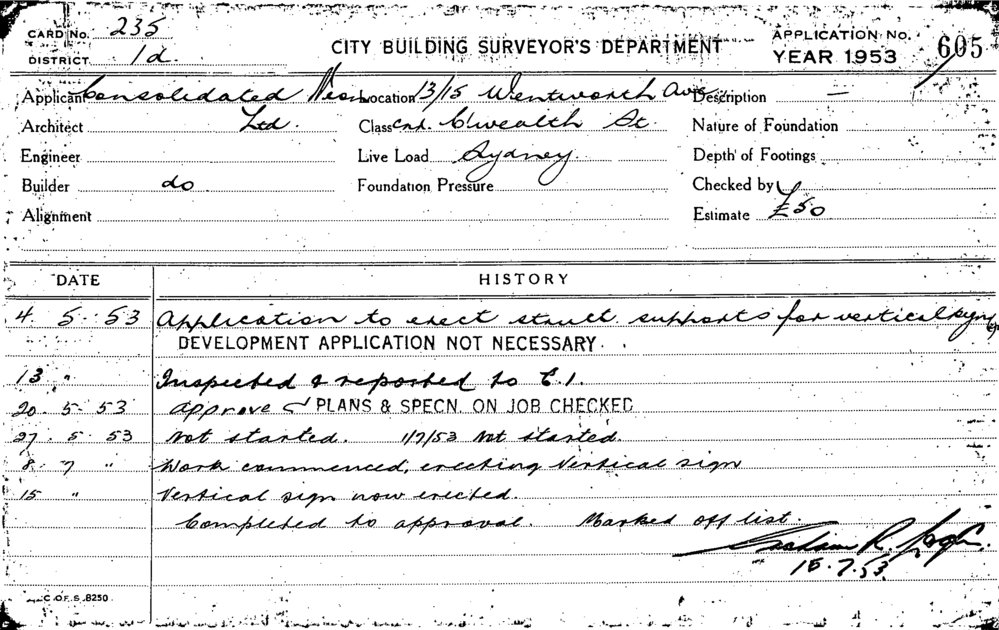 CARD No. 235
DISTRICT 1d.
CITY BUILDING SURVEYOR'S DEPARTMENT
APPLICATION No. 605
YEAR 1953
Applicant Consolidated Neon Location 13/15 Wentworth Ave Description —
Architect Ltd. Class Cnr. C'wealth St. Nature of Foundation
Engineer Live Load Sydney. Depth of Footings
Builder do Foundation Pressure Checked by
Alignment Estimate £50
DATE HISTORY
4. 5. 53 Application to erect struct. supports for vertical sign
DEVELOPMENT APPLICATION NOT NECESSARY.
13 " Inspected & reported to C.I.
20. 5. 53 approve PLANS & SPECN. ON JOB CHECKED
27. 5. 53 Not started. 1/7/53 Not started.
8. 7 " Work commenced, erecting Vertical sign
15 " Vertical sign now erected.
Completed to approval. Marked off list.
R.
15.7.53
C.OF.S. 8250